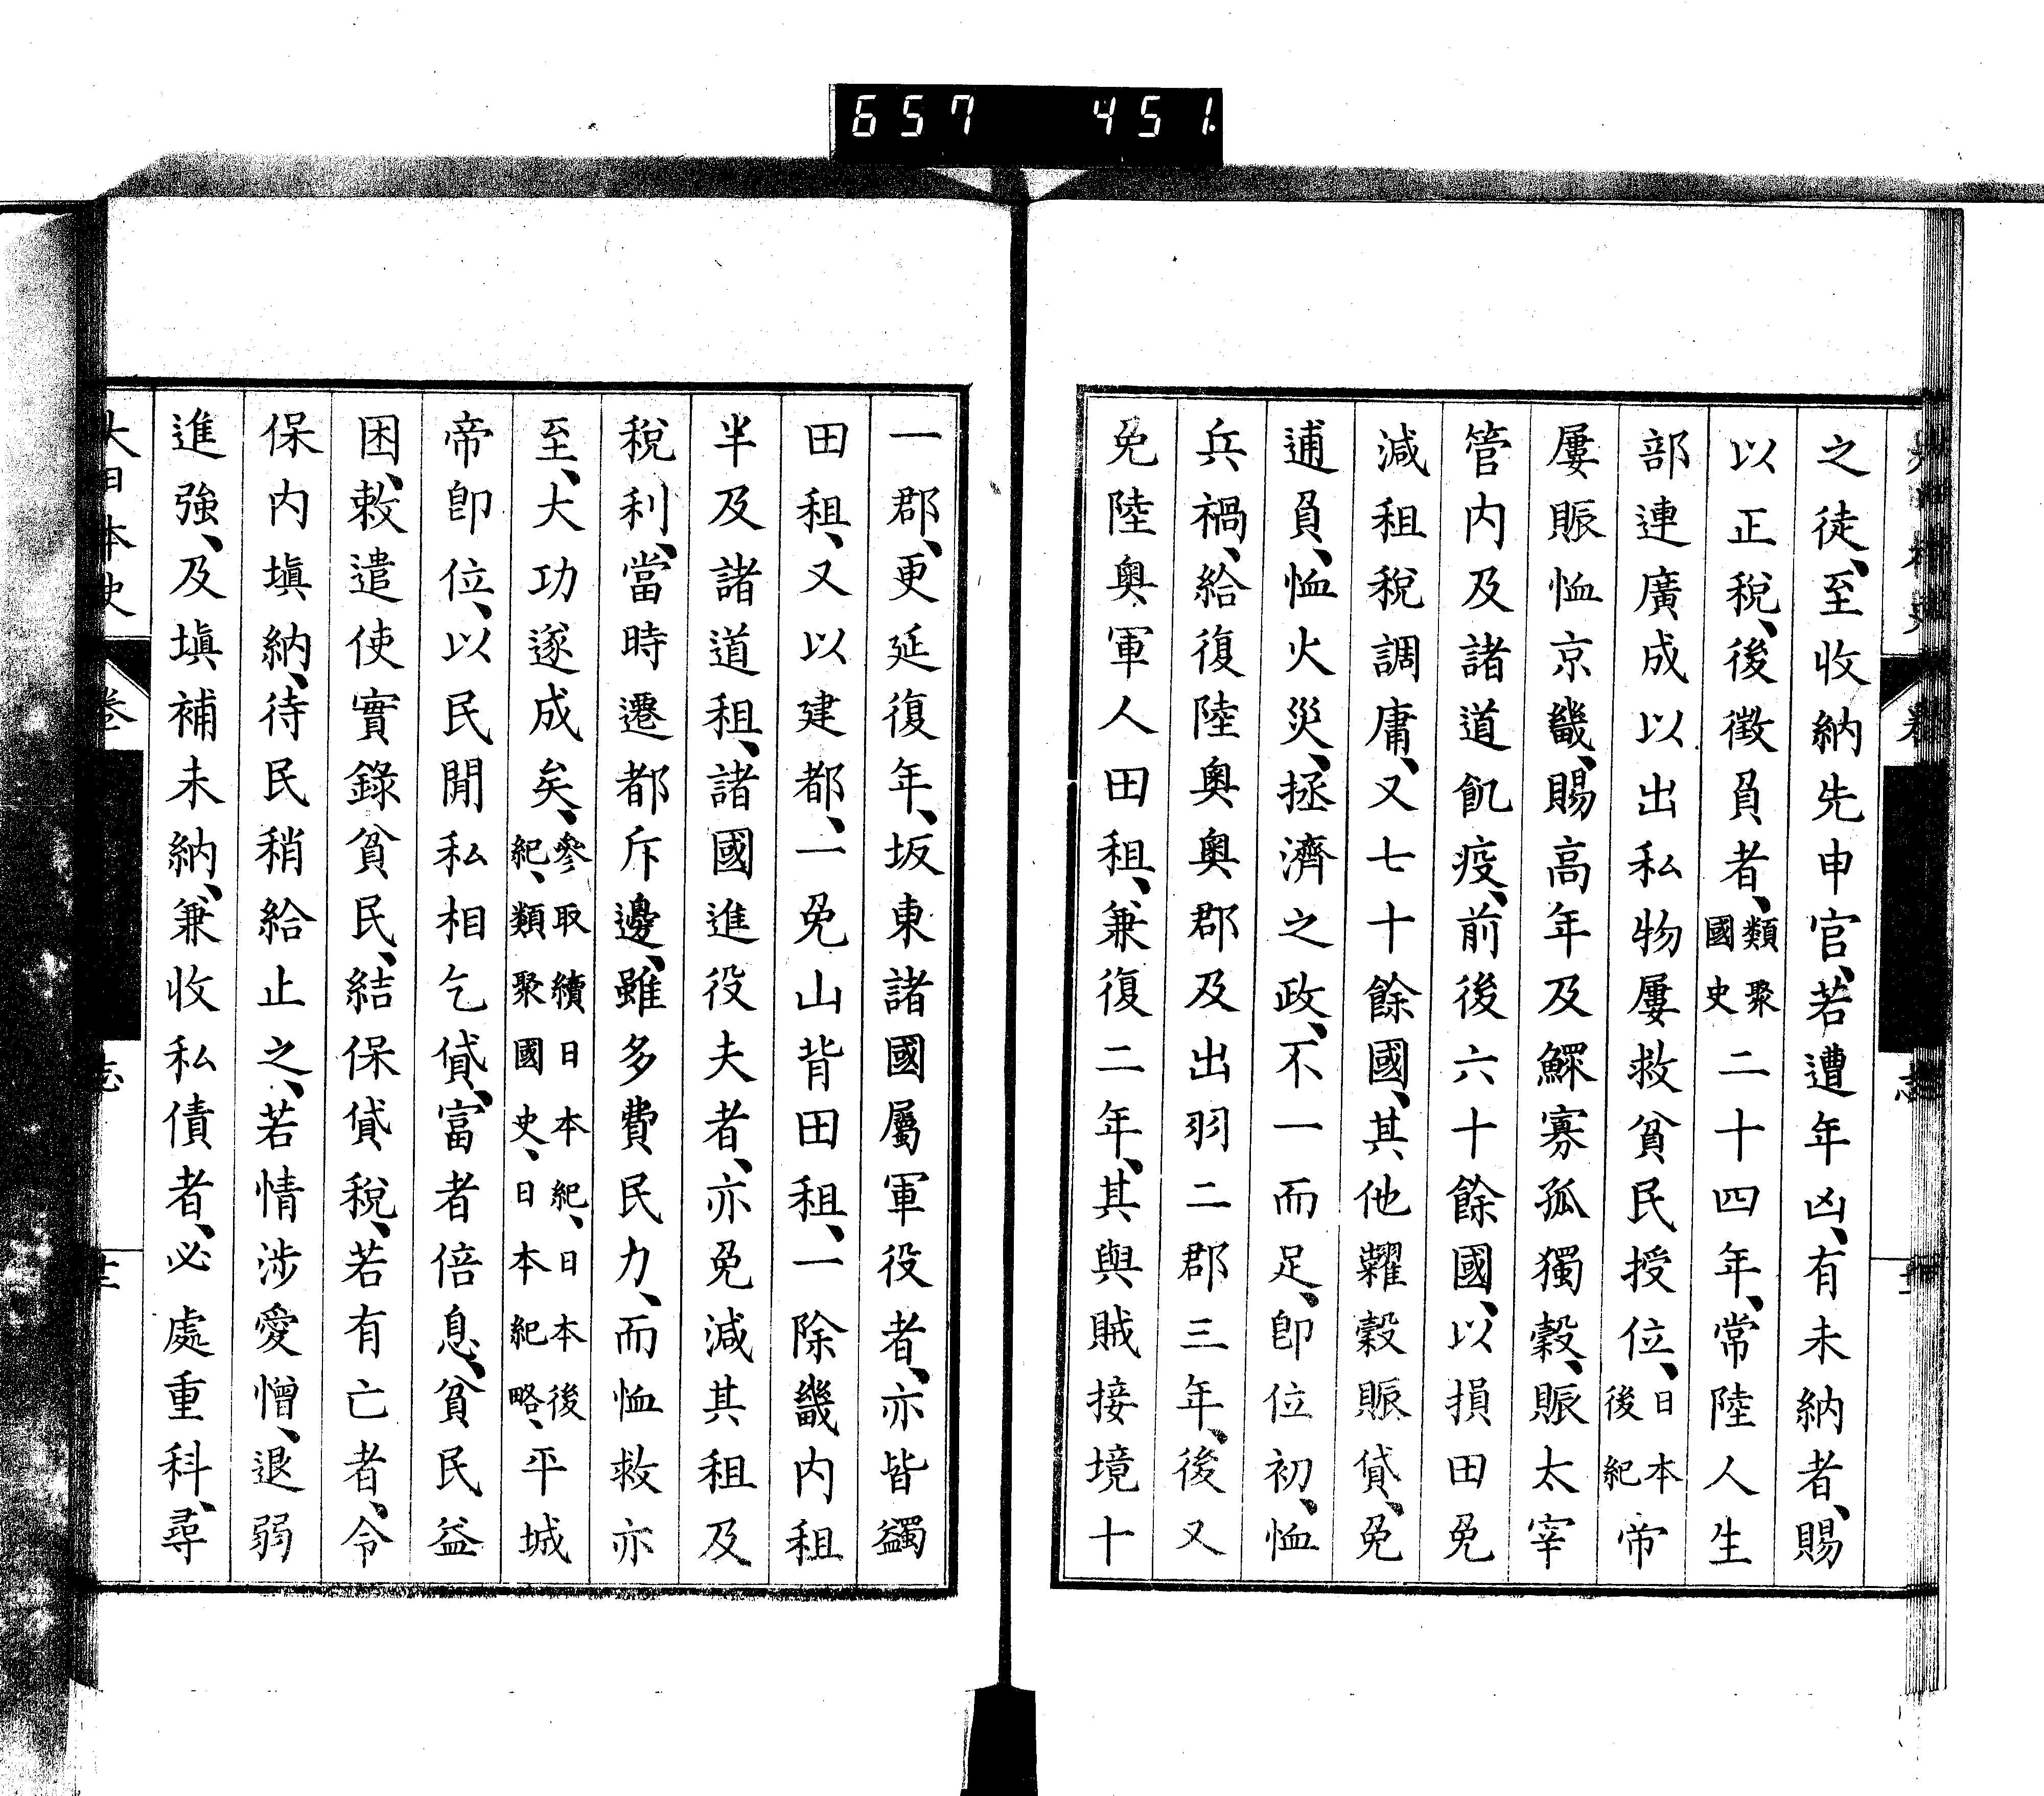 657 451
之徒、至收納先申官、若遭年凶、有未納者、賜
以正稅、後徵負者、類聚國史二十四年、常陸人生
部連廣成以出私物屢救貧民授位、日本後紀帝
屢賑恤京畿、賜高年及鰥寡孤獨穀、賑太宰
管内及諸道飢疫、前後六十餘國、以損田免
減租稅調庸、又七十餘國、其他糶穀賑貸、免
逋負、恤火災、拯濟之政、不一而足、卽位初、恤
兵禍、給復陸奧奧郡及出羽二郡三年、後又
免陸奧軍人田租、兼復二年、其與賊接境十
一郡、更延復年、坂東諸國屬軍役者、亦皆蠲
田租、又以建都、一免山背田租、一除畿内租
半及諸道租、諸國進役夫者、亦免減其租及
稅利、當時遷都斥邊、雖多費民力、而恤救亦
至、大功遂成矣、參取續日本紀、日本後紀、類聚國史、日本紀略、平城
帝卽位、以民間私相乞貸、富者倍息、貧民益
困、敕遣使實錄貧民、結保貸稅、若有亡者、令
保内塡納、待民稍給止之、若情涉愛憎、退弱
進強、及塡補未納、兼收私債者、必處重科、尋
大日本史
卷
志